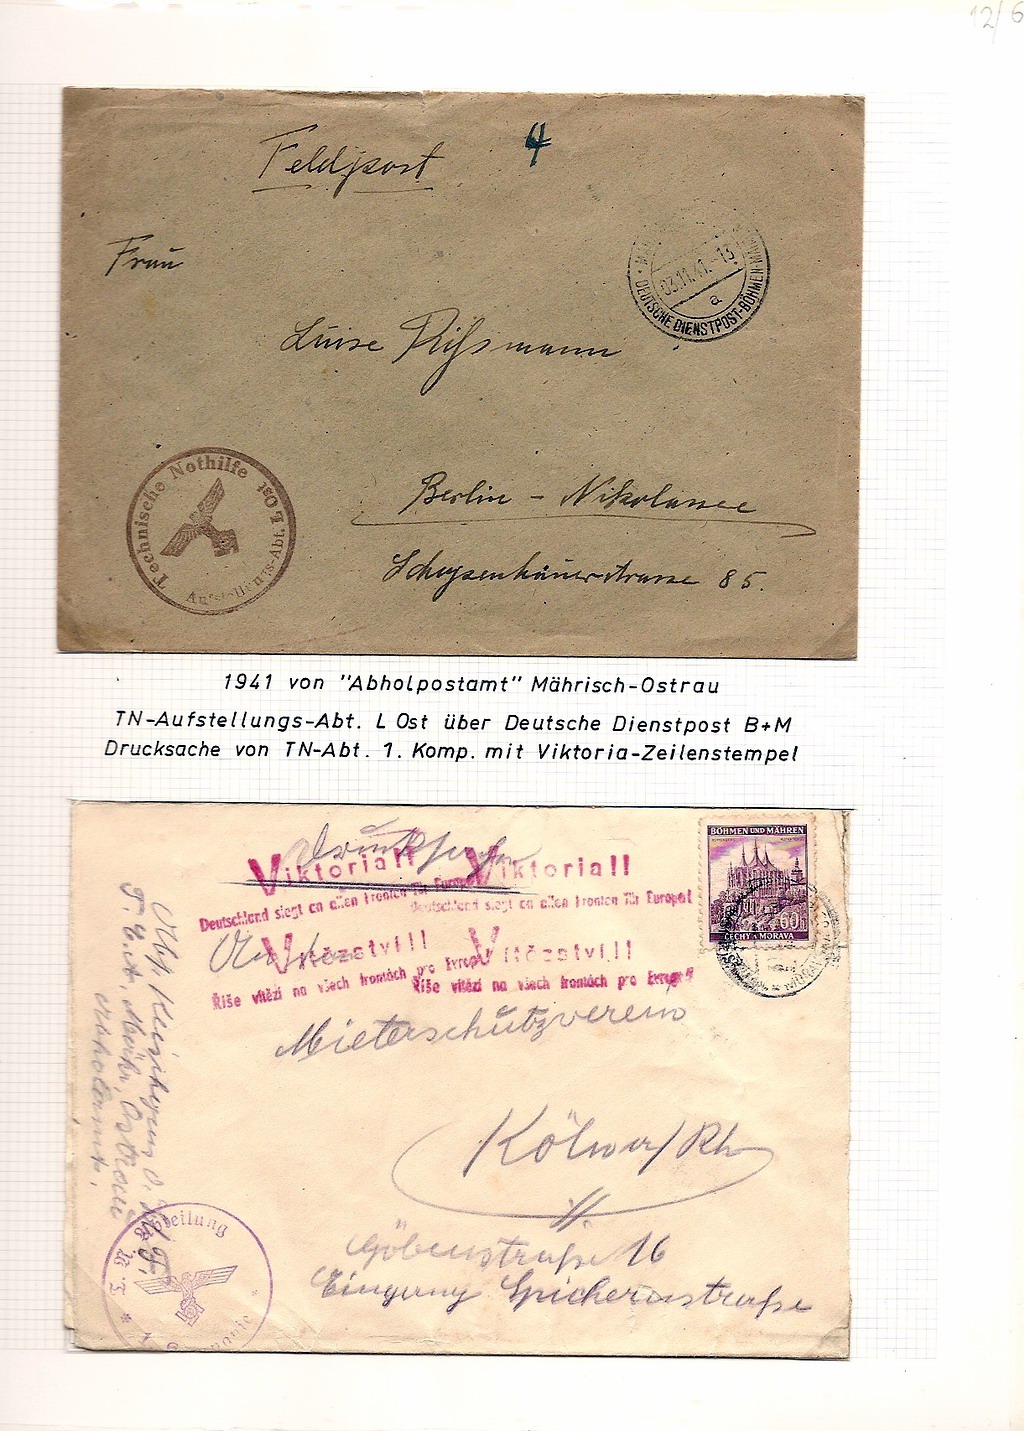 12/6
Feldpost
4
Frau
Luise Rißmann
Berlin - Nikolassee
Schopenhauerstrasse 85.
03.11.41.-13
a
DEUTSCHE DIENSTPOST-BÖHMEN-MÄHREN
Technische Nothilfe
Aufstellungs-Abt. L Ost
1941 von "Abholpostamt" Mährisch-Ostrau
TN-Aufstellungs-Abt. L Ost über Deutsche Dienstpost B+M
Drucksache von TN-Abt. 1. Komp. mit Viktoria-Zeilenstempel
Drucksache
BÖHMEN UND MÄHREN
60h
ČECHY A MORAVA
Viktoria!! Viktoria!!
Deutschland siegt an allen Fronten für Europa!
Deutschland siegt an allen Fronten für Europa!
An den
Vítězství!! Vítězství!!
Říše vítězí na všech frontách pro Evropu!
Říše vítězí na všech frontách pro Evropu!
Mieterschutzverein
Köln a/Rh
Göbenstraße 16
Eingang Spichernstraße
Mähr. Ostrau
Abteilung